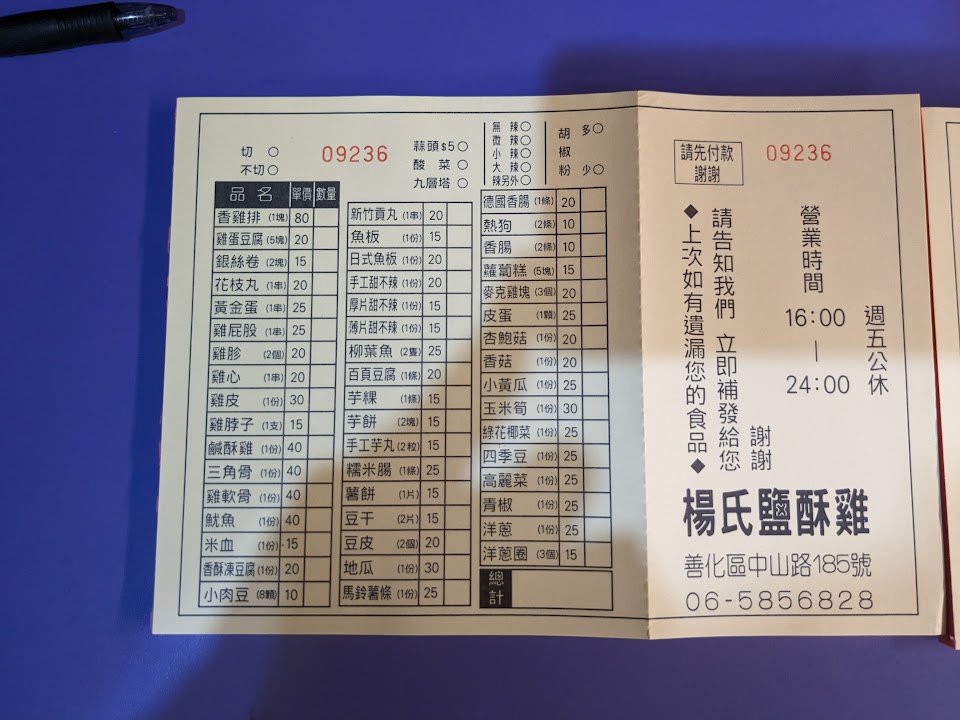 切 ○
不切○
09236
蒜頭$5○
酸菜 ○
九層塔 ○
無辣○
微辣○
小辣○
大辣○
辣另外○
胡椒粉 多○ 少○
品名 單價 數量
香雞排 (1塊) 80
雞蛋豆腐 (5塊) 20
銀絲卷 (2塊) 15
花枝丸 (1串) 20
黃金蛋 (1串) 25
雞屁股 (1串) 25
雞胗 (2個) 20
雞心 (1串) 20
雞皮 (1份) 30
雞脖子 (1支) 15
鹹酥雞 (1份) 40
三角骨 (1份) 40
雞軟骨 (1份) 40
魷魚 (1份) 40
米血 (1份) 15
香酥凍豆腐 (1份) 20
小肉豆 (8顆) 10
新竹貢丸 (1串) 20
魚板 (1份) 15
日式魚板 (1份) 20
手工甜不辣 (1份) 20
厚片甜不辣 (1份) 15
薄片甜不辣 (1份) 15
柳葉魚 (2隻) 25
百頁豆腐 (1條) 20
芋粿 (1條) 15
芋餅 (2塊) 15
手工芋丸 (2粒) 15
糯米腸 (1條) 25
薯餅 (1片) 15
豆干 (2片) 15
豆皮 (2個) 20
地瓜 (1份) 30
馬鈴薯條 (1份) 25
德國香腸 (1條) 20
熱狗 (2條) 10
香腸 (2條) 10
蘿蔔糕 (5塊) 15
麥克雞塊 (3個) 20
皮蛋 (1顆) 25
杏鮑菇 (1份) 20
香菇 (1份) 20
小黃瓜 (1份) 25
玉米筍 (1份) 30
綠花椰菜 (1份) 25
四季豆 (1份) 25
高麗菜 (1份) 25
青椒 (1份) 25
洋蔥 (1份) 25
洋蔥圈 (3個) 15
總計
請先付款
謝謝
09236
營業時間
16:00
｜
24:00
週五公休
◆上次如有遺漏您的食品◆
請告知我們 立即補發給您
謝謝
楊氏鹽酥雞
善化區中山路185號
06-5856828